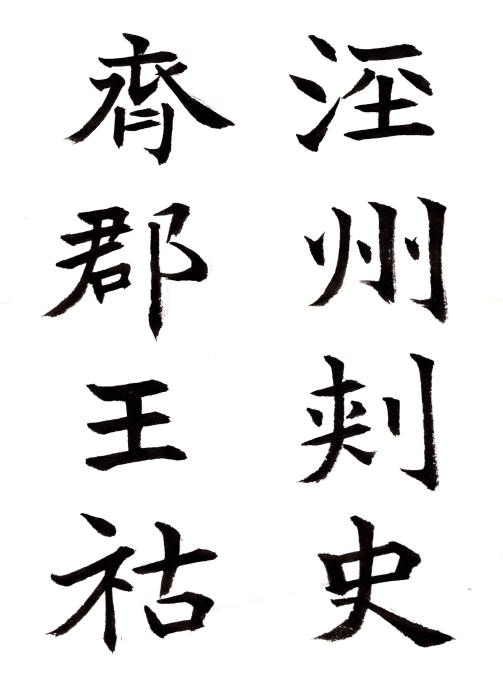 涇州刺史
齊郡王祐